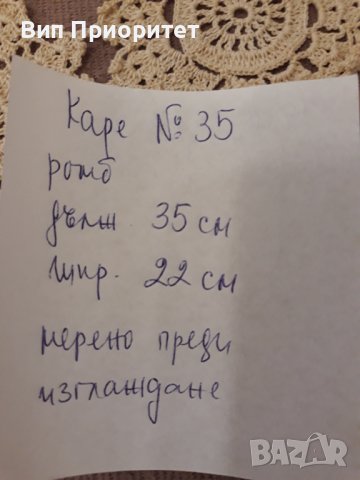 Вип Приоритет
Каре №: 35
ромб
дълж. 35 см
шир. 22 см
мерено преди
изглаждане
BAZAR